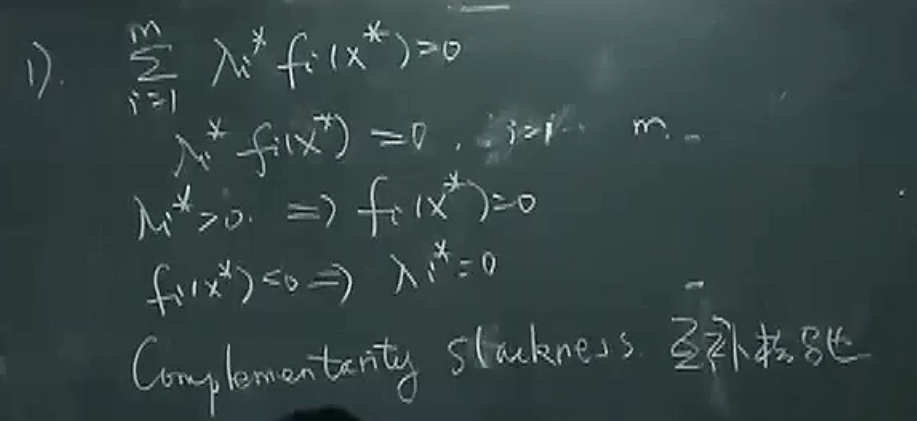 1). \sum_{i=1}^{m} λi* fi(x*)=0
λi* fi(x*) =0, i=1... m.
λi*>0. => fi(x*)=0
fi(x*)<0 => λi*=0
Complementarity slackness 互补松弛